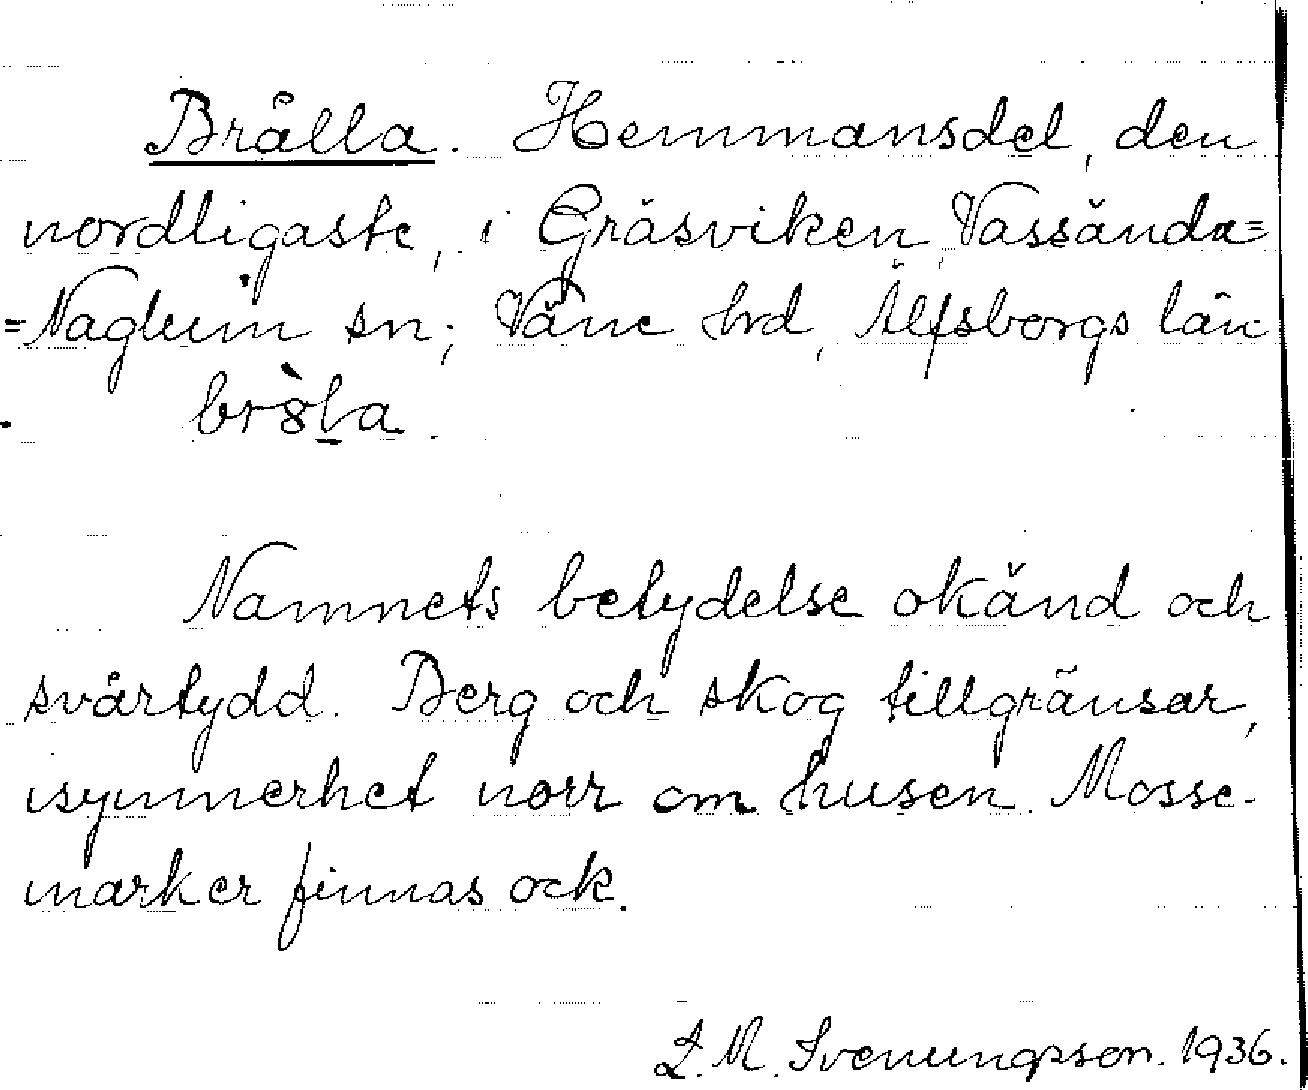 Brålla. Hemmansdel, den
nordligaste, i Gräsviken Vassända=
=Naglum sn; Väne hrd, Älfsborgs län
brò̱la.
Namnets betydelse okänd och
svårtydd. Berg och skog tillgränsar,
isynnerhet norr om husen. Mosse-
marker finnas ock.
L. M. Svenungsson. 1936.